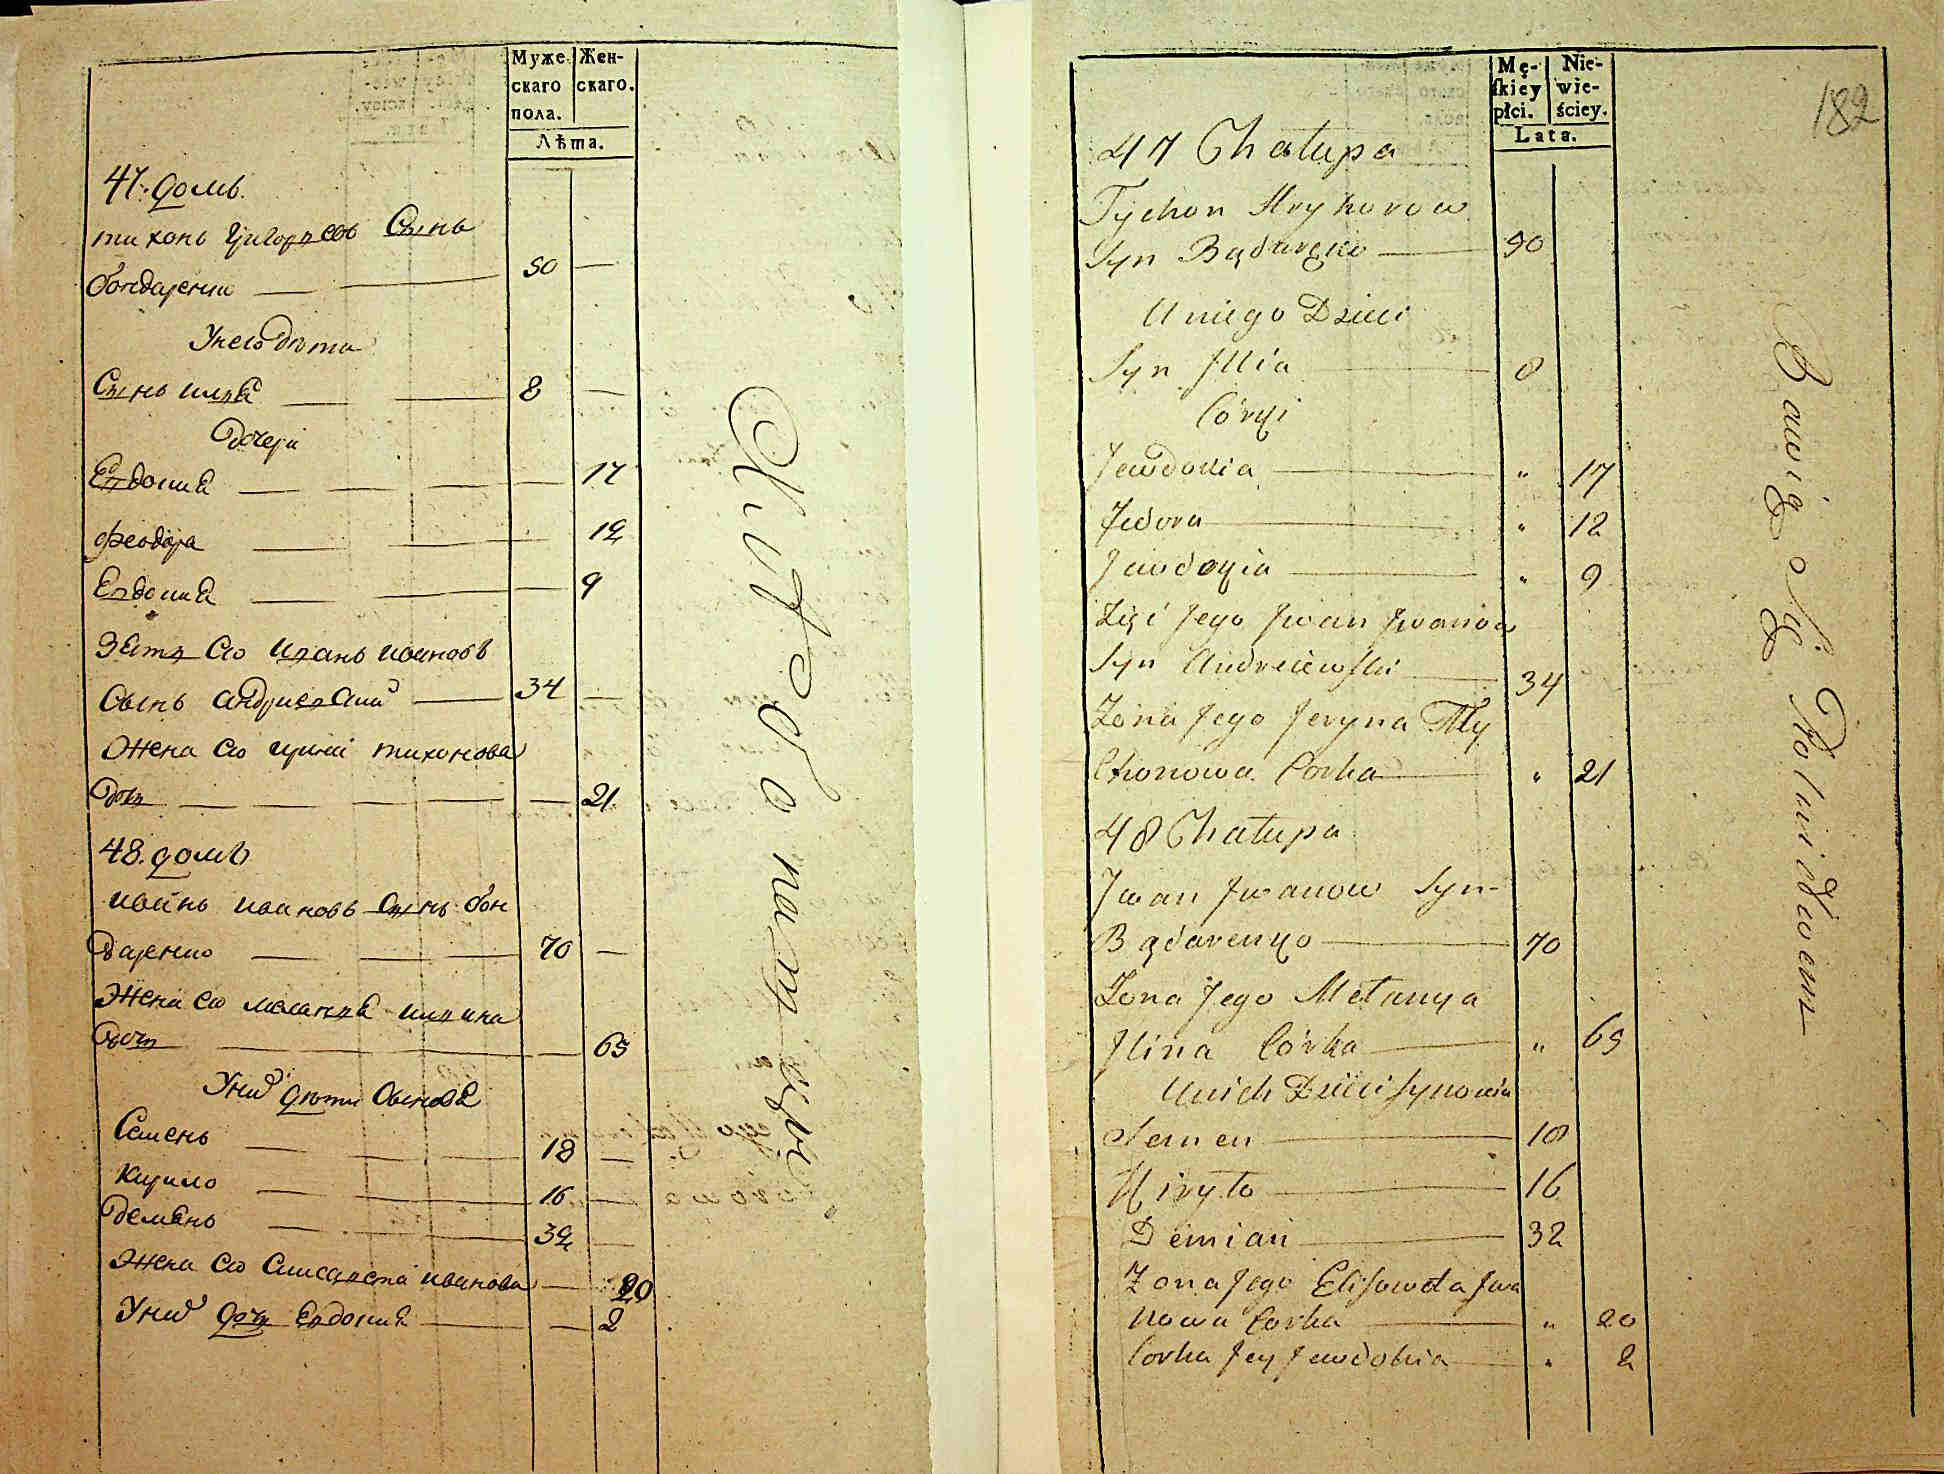 Муже- скаго пола. Жен- скаго.
Лѣта.
47. домъ
тихонъ григорьевъ Сынъ
бондаренко 50 —
У него дѣти
Сынъ илья 8 —
Дочери
Евдокия 17
феодора 12
Евдокия 9
Зять его иванъ ивановъ
Сынъ андриевский 34 —
Жена его ирина тихонова
Дочь — 21
48. домъ
иванъ ивановъ Сынъ бон
даренко 70 —
Жена его меланья ильина
Дочь — 65
У них дѣти Сыновья
Семенъ 18 —
Кирило 16 —
Демьянъ 32 —
Жена его Елисавета иванова — 20
У них дочь Евдокия — 2
Житопашцы
Mę- skiey płci. Nie- wie- ściey.
Lata.
182
47 Chałupa
Tychon Hryhorow
Syn Bądaręko 90
U niego Dzieci
Syn Illia 8
Córki
Jewdokia " 17
Fedora " 12
Jewdokia " 9
Zięć Jego Jwan Jwanow
Syn Andreiewski 34
Zona Jego Jeryna Ty
chonowa Corka " 21
48 Chałupa
Jwan Jwanow Syn
Bądarenko 70
Zona Jego Mełanya
Jlina Córka " 65
U nich Dzieci Synowie
Semen 18
Kiryło 16
Demian 32
Zona Jego Elisaweta Jwa
nowa Corka " 20
Corka Jey Jewdokia " 2
Bawią Się Rolnictwem